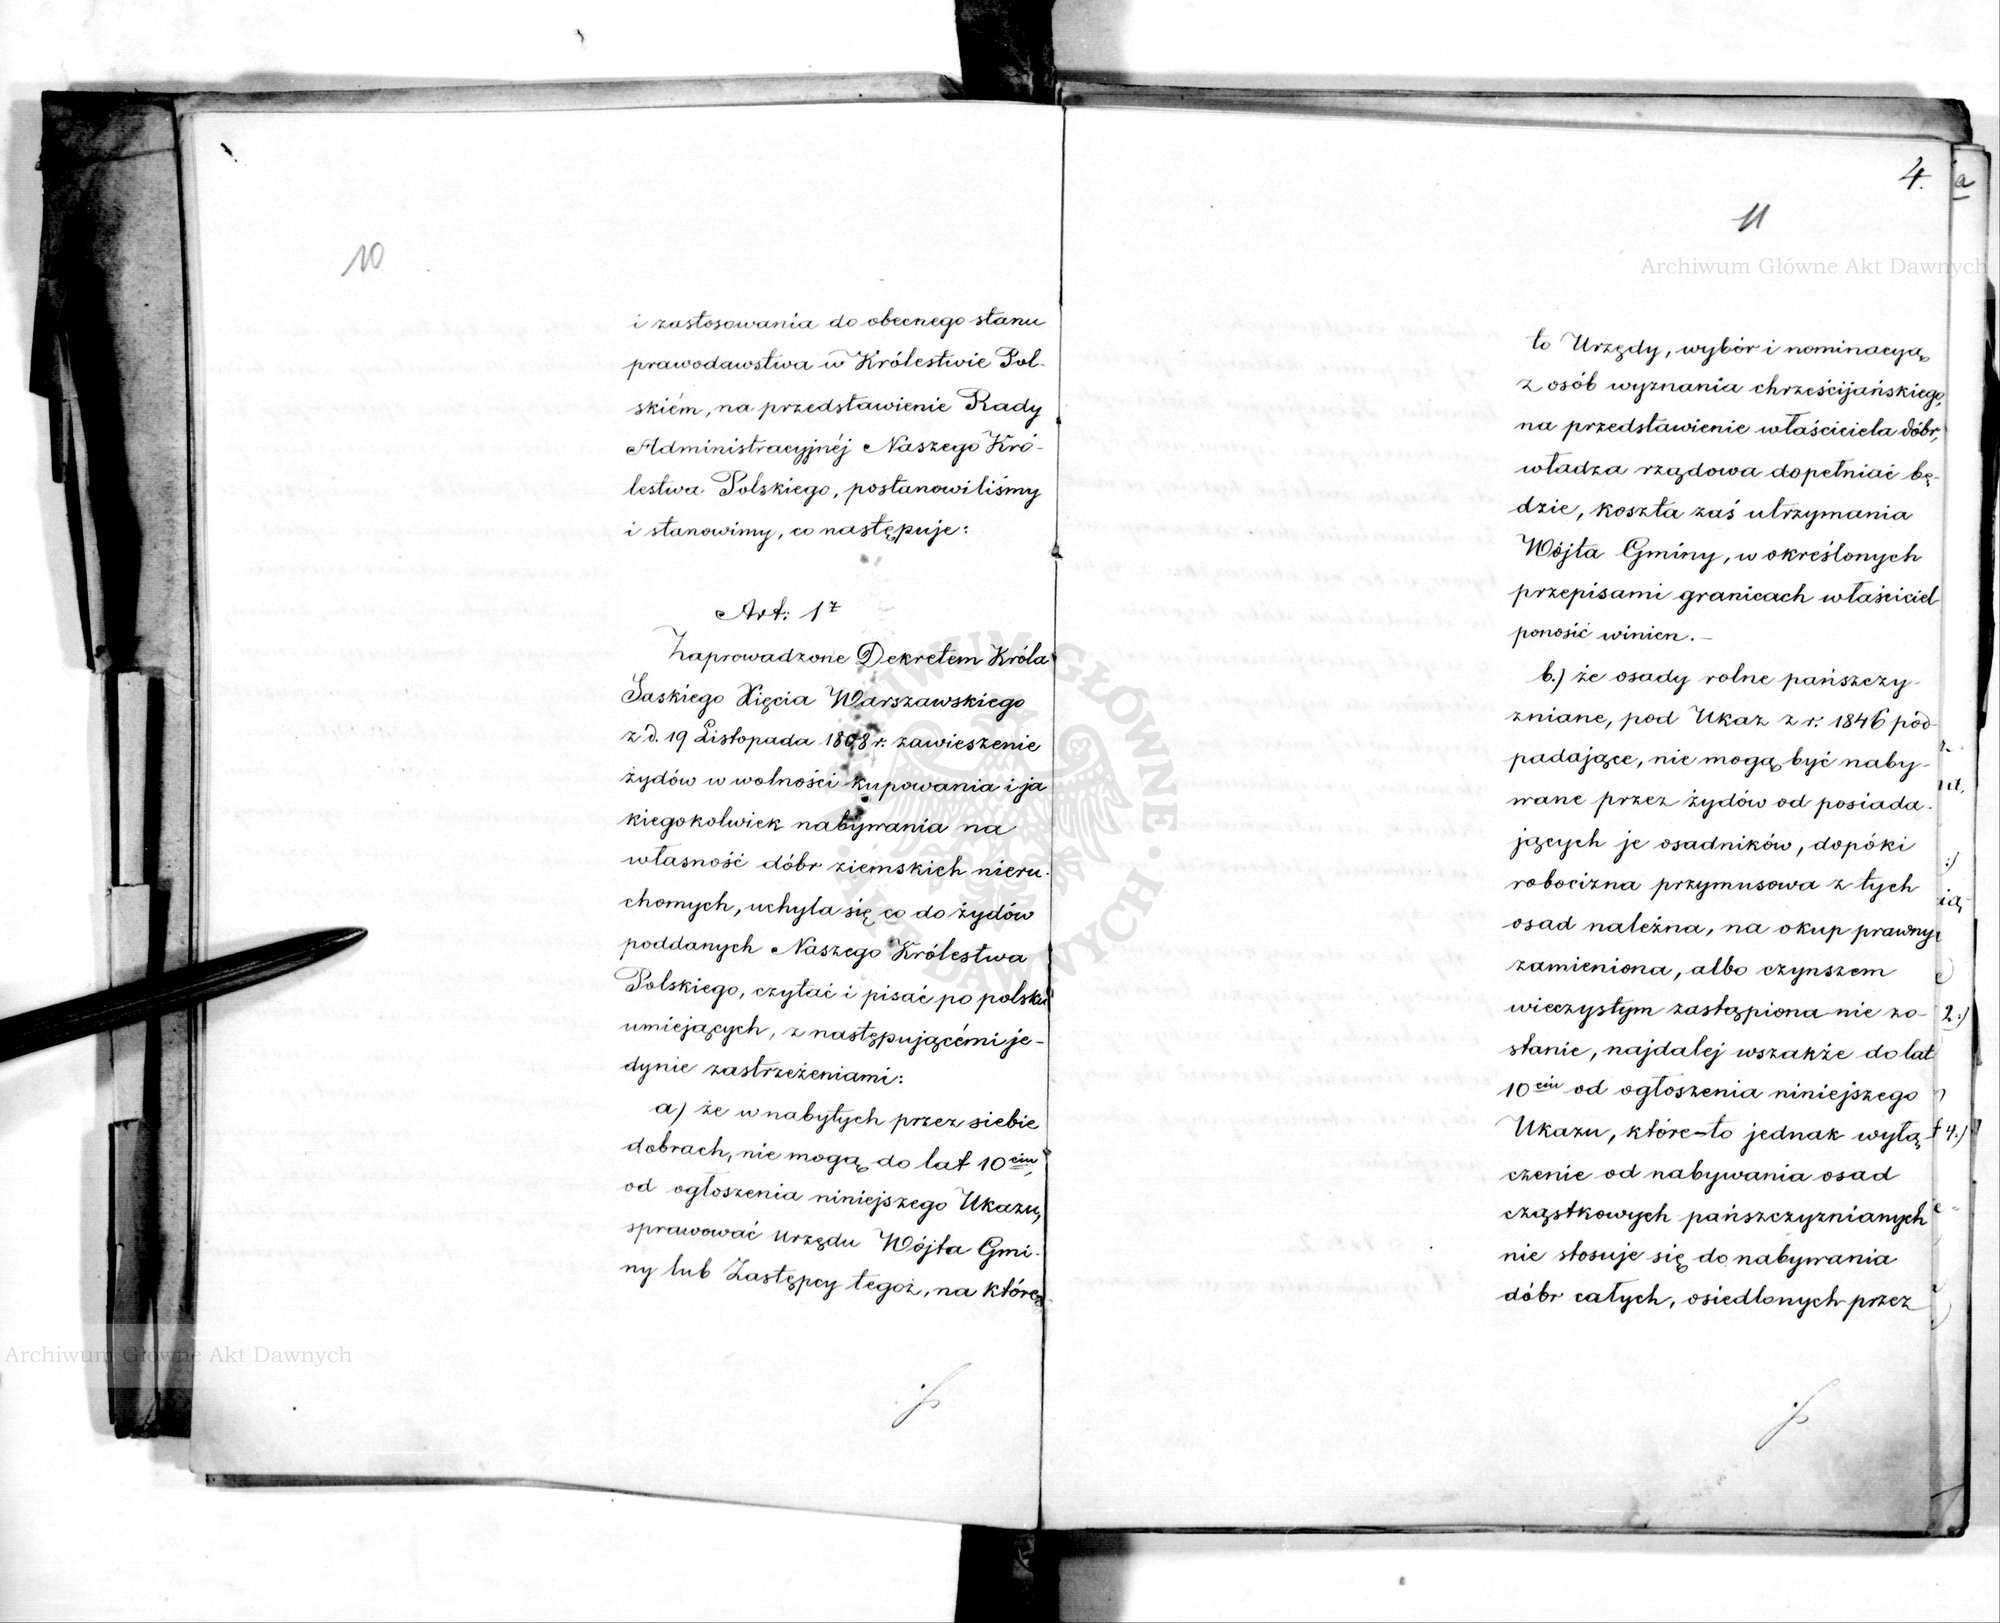 10
i zastosowania do obecnego stanu
prawodawstwa w Królestwie Pol-
skiém, na przedstawienie Rady
Administracyjnéj Naszego Kró-
lestwa Polskiego, postanowiliśmy
i stanowimy, co następuje:
Art: 1
Zaprowadzone Dekretem Króla
Saskiego Xięcia Warszawskiego
z d. 19 Listopada 1808 r. zawieszenie
żydów w wolności kupowania i ja
kiegokolwiek nabywania na
własność dóbr ziemskich nieru-
chomych, uchyla się co do żydów
poddanych Naszego Królestwa
Polskiego, czytać i pisać po polsku
umiejących, z następującémi je-
dynie zastrzeżeniami:
a) że w nabytych przez siebie
dobrach, nie mogą do lat 10ciu,
od ogłoszenia niniejszego Ukazu,
sprawować urzędu Wójta Gmi-
ny lub Zastępcy tegoż, na które
Archiwum Główne Akt Dawnych
4.
a
11
Archiwum Główne Akt Dawnych
to Urzędy, wybór i nominacyą
z osób wyznania chrześcijańskiego,
na przedstawienie właściciela dóbr,
władza rządowa dopełniać bę-
dzie, koszta zaś utrzymania
Wójta Gminy, w określonych
przepisami granicach właściciel
ponosić winien.-
b.) że osady rolne pańszczy-
zniane, pod Ukaz z r. 1846 pod-
padające, nie mogą być naby-
wane przez żydów od posiada-
jących je osadników, dopóki
robocizna przymusowa z tych
osad należna, na okup prawny
zamieniona, albo czynszem
wieczystym zastąpiona nie zo-
stanie, najdalej wszakże do lat
10ciu od ogłoszenia niniejszego
Ukazu, które-to jednak wyłą
czenie od nabywania osad
cząstkowych pańszczyznianych
nie stosuje się do nabywania
dóbr całych, osiedlonych przez
2:)
4:)
ARCHIWUM GŁÓWNE AKT DAWNYCH